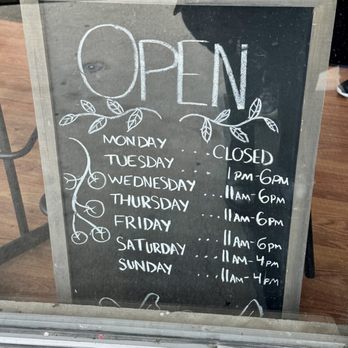 OPEN
MONDAY ... CLOSED
TUESDAY ... 1PM-6PM
WEDNESDAY ... 11AM-6PM
THURSDAY ... 11AM-6PM
FRIDAY ... 11AM-6PM
SATURDAY ... 11AM-4PM
SUNDAY ... 11AM-4PM